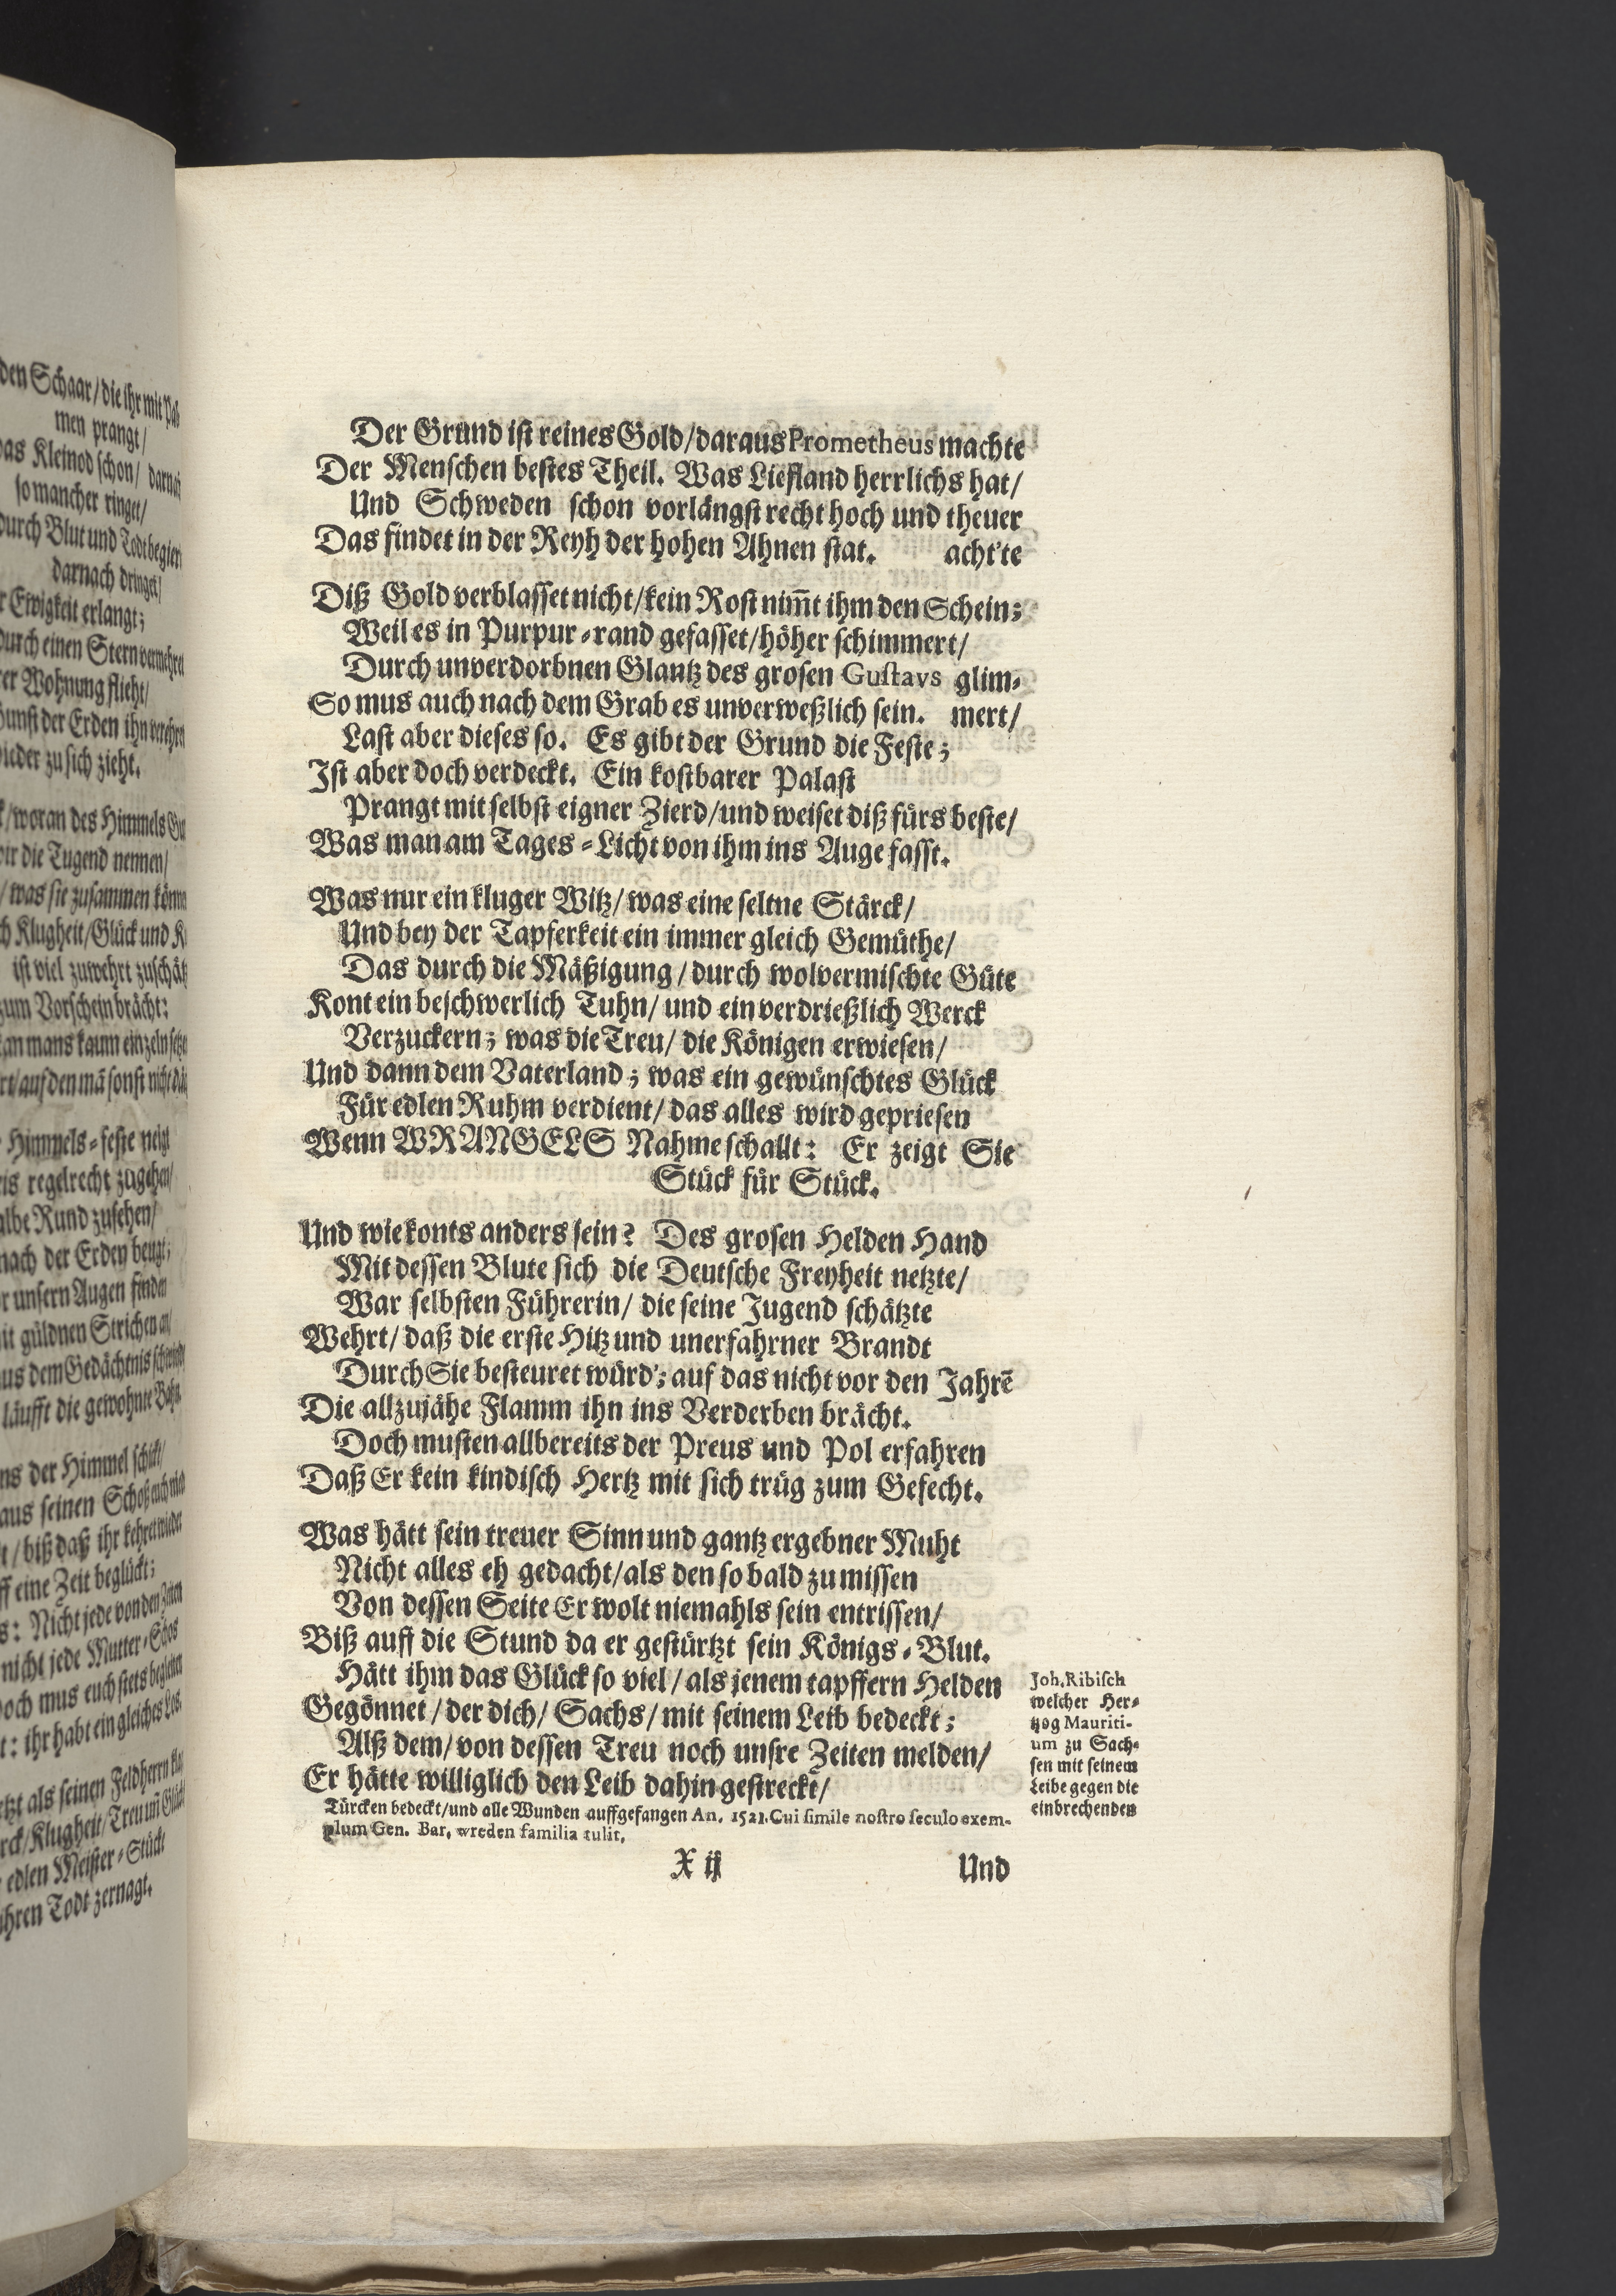 den Schaar/ die ihr mit
men prangt/
das Kleinod schon/ darnach
so mancher ringet/
durch Blut und Todt begier
darnach dringet/
Ewigkeit erlangt;
durch einen Stern vermehret
Wohnung flieht/
Gunst der Erden ihn verehret
wieder zu sich zieht.
/ woran des Himmels
die Tugend nennen/
/ was sie zusammen
Klugheit/ Glück und
ist viel zuwehrt zuschätz
zum Vorschein brächt:
kan mans kaum eintzeln
auf den mā sonst nicht
Himmels-feste neigt
regelrecht zugehen/
Rund zusehen/
nach der Erden beugt;
unsern Augen finden
mit güldnen Strichen an/
aus dem Gedächtnis
läufft die gewohnte Bahn.
der Himmel schickt/
aus seinen Schoß
/ biß daß ihr kehret wieder
eine Zeit beglückt;
: Nicht jede von den Zeiten
nicht jede Mutter-Schos
Doch mus euch stets begleiten
: ihr habt ein gleiches Los.
als seinen Feldherrn
/ Klugheit/ Treu uñ Glück
edlen Meister-Stück:
ihren Todt zernagt.
Der Grund ist reines Gold/ daraus Prometheus machte
Der Menschen bestes Theil. Was Liefland herrlichs hat/
Und Schweden schon vorlängst recht hoch und theuer
Das findet in der Reyh der hohen Ahnen stat. acht'te
Diß Gold verblasset nicht/ kein Rost nim̃t ihm den Schein;
Weil es in Purpur-rand gefasset/ höher schimmert/
Durch unverdorbnen Glantz des grosen Gustavs glim-
So mus auch nach dem Grab es unverweßlich sein. mert/
Last aber dieses so. Es gibt der Grund die Feste;
Ist aber doch verdeckt. Ein kostbarer Palast
Prangt mit selbst eigner Zierd/ und weiset diß fürs beste/
Was man am Tages-Licht von ihm ins Auge fasst.
Was nur ein kluger Witz/ was eine seltne Stärck/
Und bey der Tapferkeit ein immer gleich Gemüthe/
Das durch die Mäßigung/ durch wolvermischte Güte
Kont ein beschwerlich Tuhn/ und ein verdrießlich Werck
Verzuckern; was die Treu/ die Königen erwiesen/
Und dann dem Vaterland; was ein gewünschtes Glück
Für edlen Ruhm verdient/ das alles wird gepriesen
Wenn WRANGELS Nahme schallt: Er zeigt Sie
Stück für Stück.
Und wie konts anders sein? Des grosen Helden Hand
Mit dessen Blute sich die Deutsche Freyheit netzte/
War selbsten Führerin/ die seine Jugend schätzte
Wehrt/ daß die erste Hitz und unerfahrner Brandt
Durch Sie besteuret würd'; auf das nicht vor den Jahrē
Die allzujähe Flamm ihn ins Verderben brächt.
Doch musten allbereits der Preus und Pol erfahren
Daß Er kein kindisch Hertz mit sich trüg zum Gefecht.
Was hätt sein treuer Sinn und gantz ergebner Muht
Nicht alles eh gedacht/ als den so bald zu missen
Von dessen Seite Er wolt niemahls sein entrissen/
Biß auff die Stund da er gestürtzt sein Königs-Blut.
Hätt ihm das Glück so viel/ als jenem tapffern Helden
Gegönnet/ der dich/ Sachs/ mit seinem Leib bedeckt;
Alß dem/ von dessen Treu noch unsre Zeiten melden/
Er hätte williglich den Leib dahin gestreckt/
Joh. Ribisch
welcher Her-
tzog Mauriti-
um zu Sach-
sen mit seinem
Leibe gegen die
einbrechenden
Türcken bedeckt/ und alle Wunden auffgefangen An. 1521. Cui simile nostro seculo exem-
plum Gen. Bar. wreden familia tulit.
X ij
Und